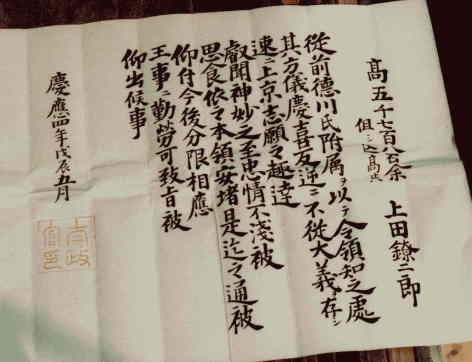 高五千七百八石余
但シ込高共
上田鐐二郎
従前徳川氏附属ヲ以テ令領知之處
其方儀慶喜反逆ニ不従大義ヲ存シ
速ニ上京志願之趣達
叡聞神妙之至忠情不淺被
思食依之本領安堵是迄之通被
仰付今後分限相應
王事ニ勤勞可致旨被
仰出候事
慶應四年戊辰五月
太政官印